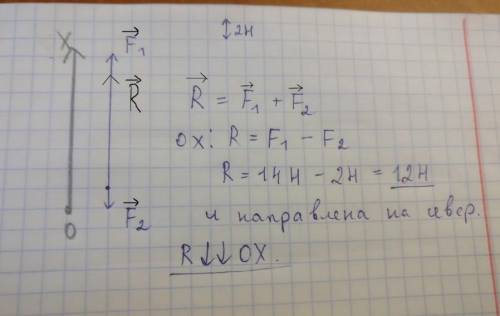 ↕2Н
X F⃗₁
R⃗
R⃗ = F⃗₁ + F⃗₂
ОХ: R = F₁ − F₂
R = 14Н − 2Н = 12Н
F⃗₂
О
и направлена на север.
R↓↓ОХ.